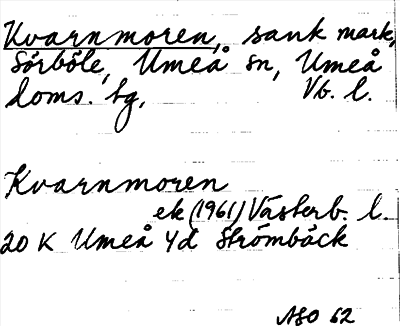 Kvarnmoren, sank mark,
Sörböle, Umeå sn, Umeå
doms. bg. Vb. l.
Kvarnmoren
ek (1961) Västerb. l.
20 K Umeå 4d Strömbäck
ASO 62